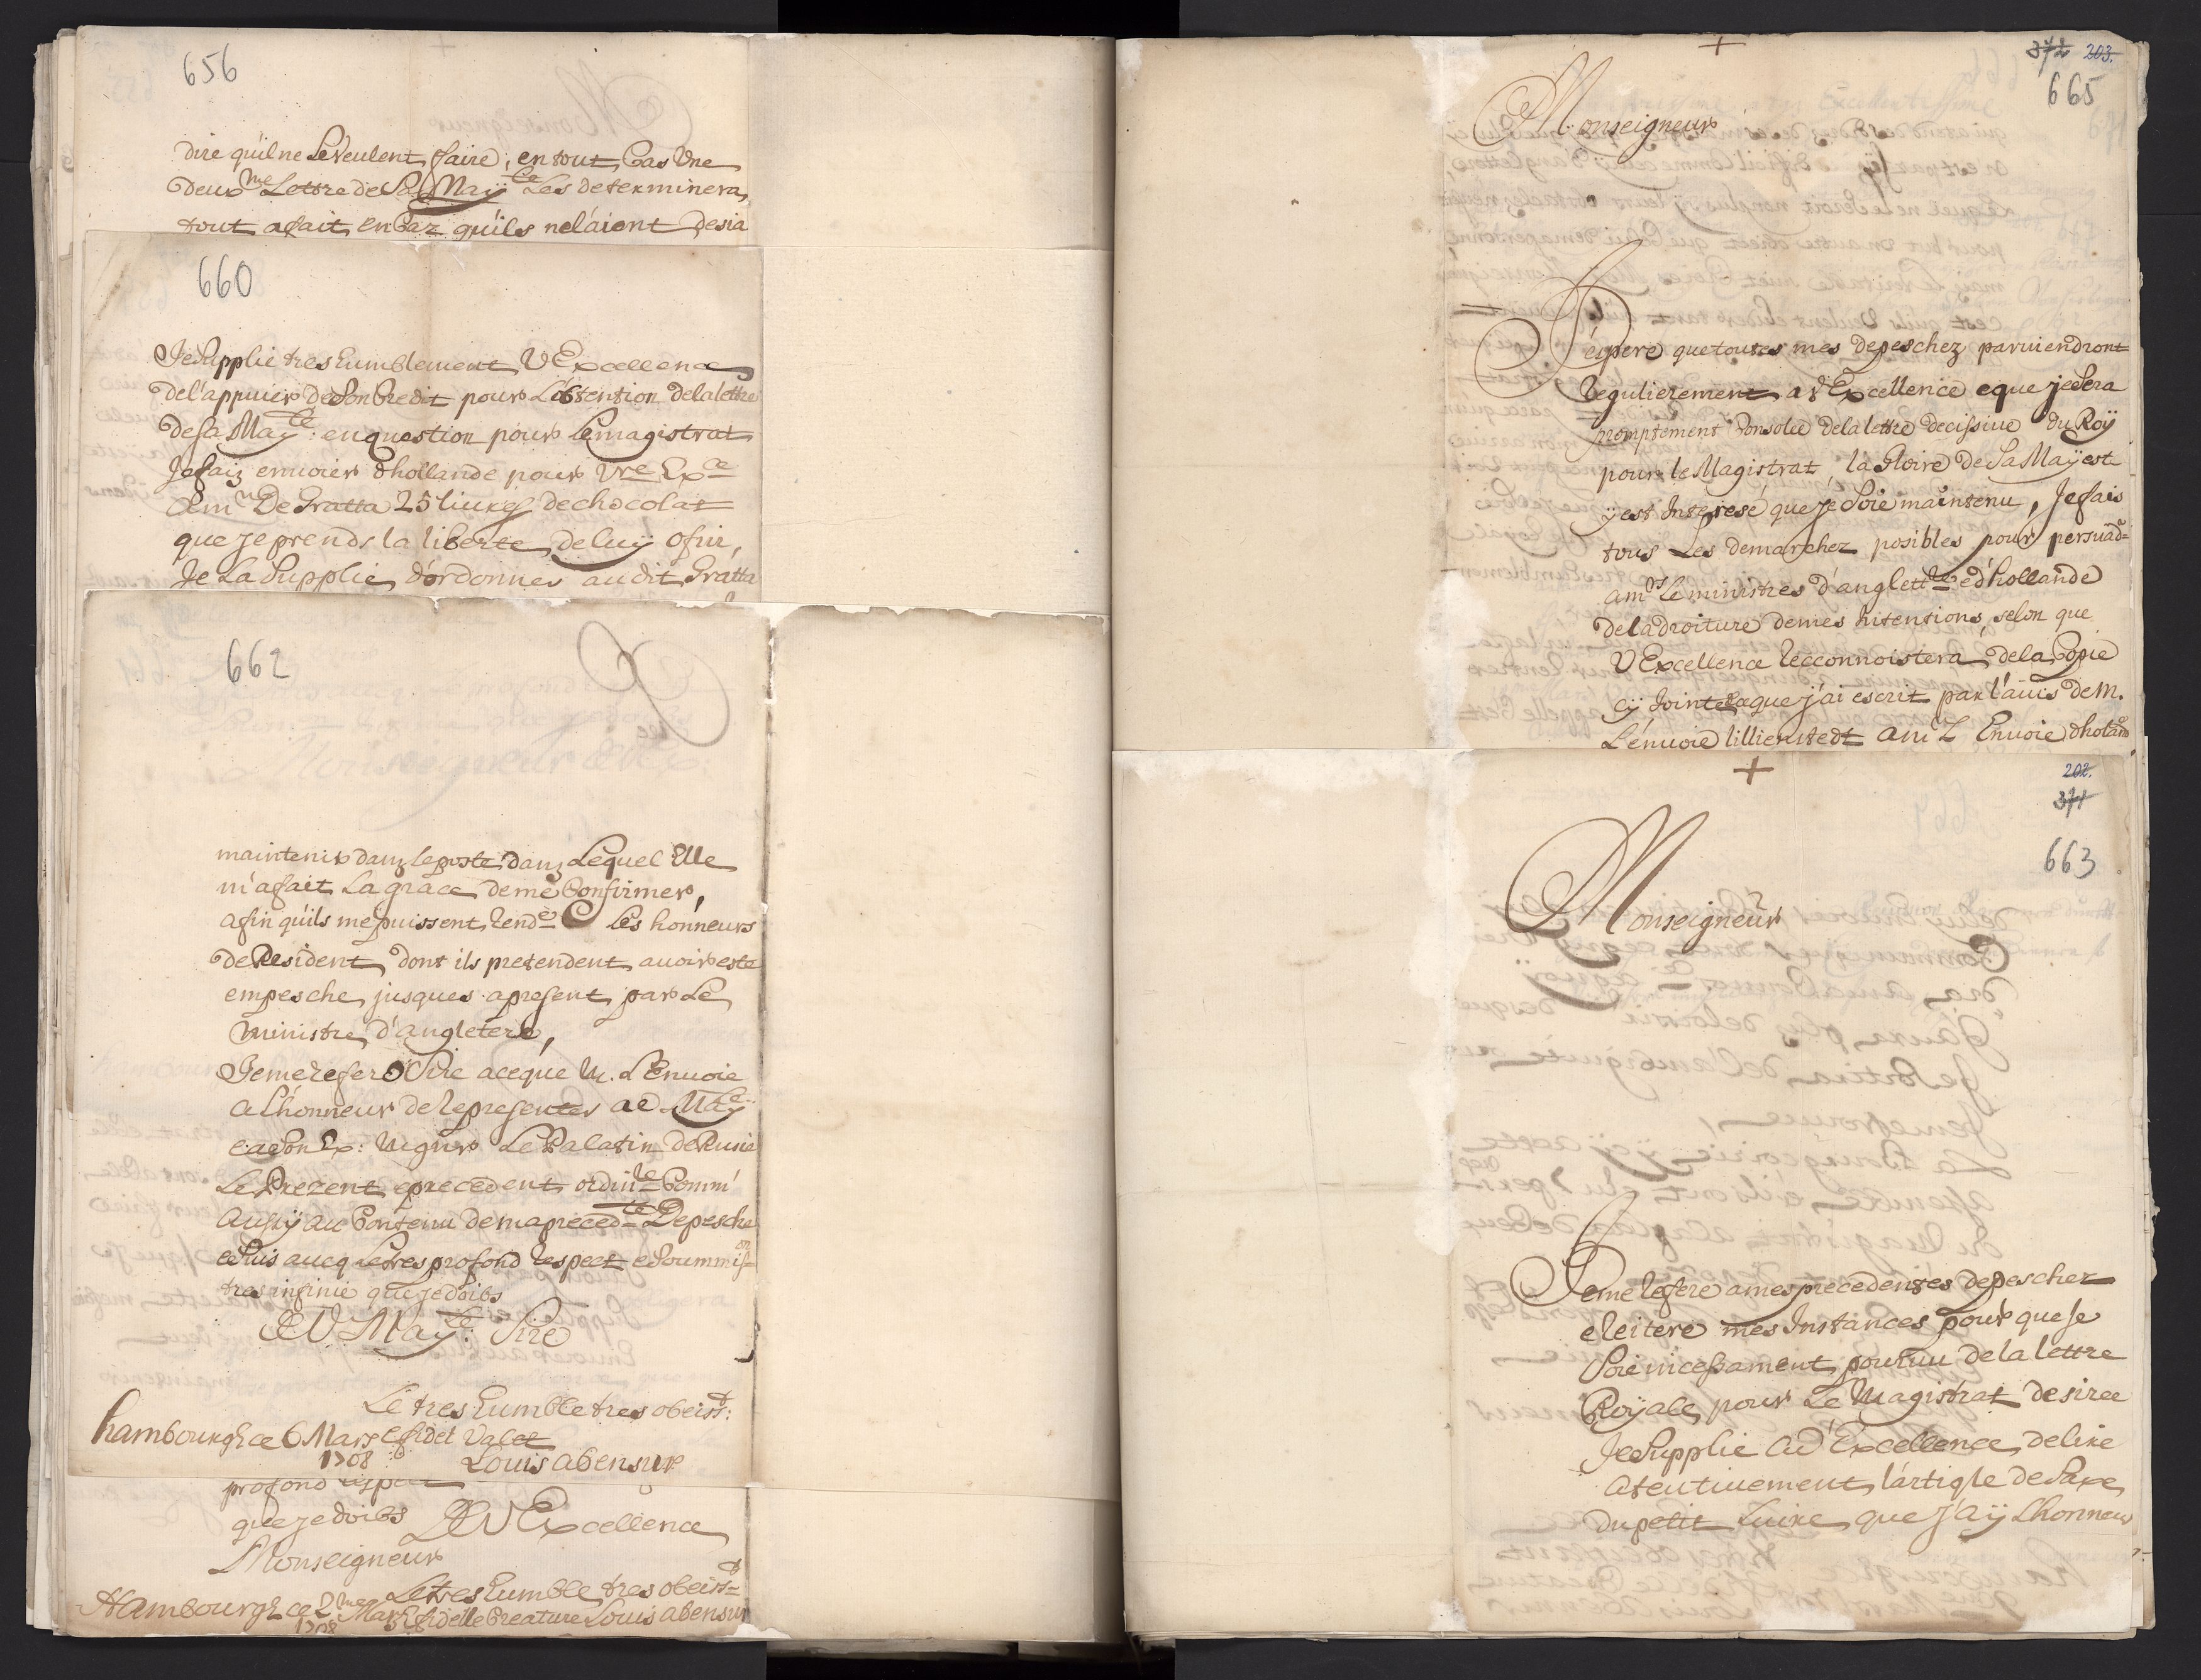 656
dire qu'il ne Le Veulent faire, en tout Cas Une
deux.me Lettre de Sa May.te Les determinera,
tout afait en Caz qu'ils nel'aient desia
660
Je Supplie tres humblement V Excellence
de l'appuier de Son Credit pour L'obtention de la lettre
de Sa May.te: en question pour Le magistrat
Je faiz enuoier d'hollande pour Vre Ex.ce
a m.r De Gratta 25 liures de chocolat
que Je prends la liberte de luÿ ofrir,
Je La Supplie d'ordonner au dit Gratta
662
maintenir danz Le poste danz Lequel Elle
m'a fait La grace de me Confirmer,
afin qu'ils me puissent rendre Les honneurs
de Resident dont ils pretendent auoir este
empesche jusques apresent par Le
Ministre d'angletere,
Je me refere Sire a ceque M. L'Enuoie
a L'honneur de representer a V. May.te
e a Son Ex: Mgnr Le Palatin de Rusie
Le Prezent e precedent ordin.re Comm'
Aussÿ au Contenu de ma preced.te Depesche
e Suis aueq Le tres profond respect e Soummiss.on
tres infinie que je doibs
De V May.te: Sire
Le tres humble tres obeiss.t:
hambourgh ce 6 Mars e fidel Valet
1708 Louis abensur
profond respect
que je doibs De V Excellence
Monseigneur
Le tres humble tres obeiss.t
Hambourgh ce 2.me Mars e fidelle Creature Louis abensur
1708
372 203.
665
Monseigneur
J'espere que toutes mes depeschez paruiendront
regulierement a V Excellence e que je Sera
promptement Consolé de la lettre decissiue du Roÿ
pour le Magistrat, la Gloire de Sa Maÿ.te
ÿ est Interesé que Je Soie maintenu, Je fais
tous Les demarchez posibles pour persuad.r
a m.rs Le ministres d'anglett.re e d'hollande
de la droiture de mes Intentions, selon que
V Excellence recconnoistera de la Copie
cÿ Jointe que j'ai escrit par l'auis de M.
L'enuoie lillienstedt a m.r L'Enuoie d'holand.
202.
371
663
Monseigneur
Je me refere a mes precedentes depeschez
e reitere mes Instances pour que Je
Soie incessament pouruu de la lettre
Royale, pour Le Magistrat desiree
Je Supplie a V Excellence de lire
atentiuement l'artigle de Saxe
du petit Liure que J'aÿ L'honneur